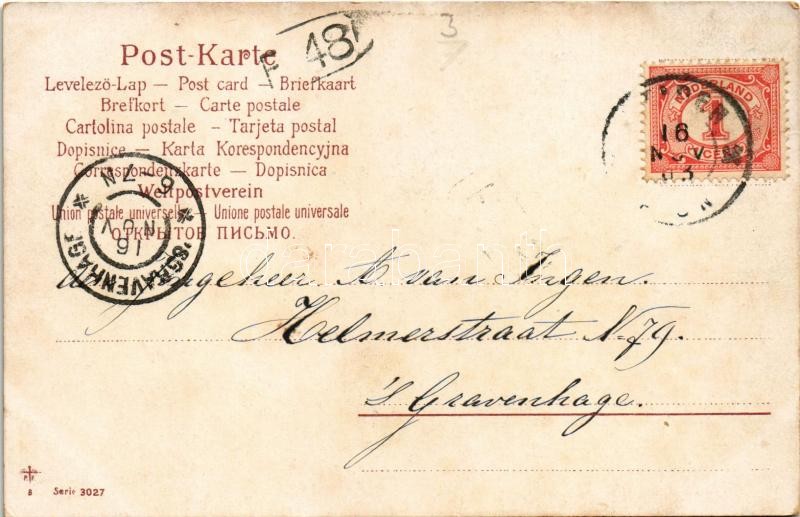 Post-Karte
Levelezö-Lap — Post card — Briefkaart
Brefkort — Carte postale
Cartolina postale — Tarjeta postal
Dopisnice — Karta Korespondencyjna
Correspondenzkarte — Dopisnica
Weltpostverein
Union postale universelle — Unione postale universale
ОТКРЫТОЕ ПИСЬМО.
F 48
3
7
NEDERLAND
1
CENT
16
NOV
'SGRAVENHAGE
16
NOV
6-7N
Jongeheer A van Ingen.
Helmerstraat No 79.
's Gravenhage.
8 Serie 3027